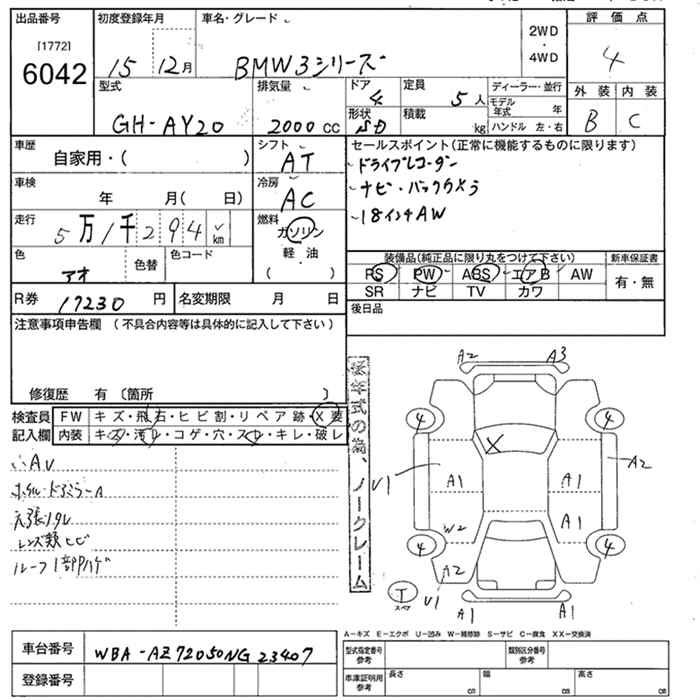 出品番号 初度登録年月 車名・グレード 2WD・4WD 評価点
[1772]
6042 15 12月 BMW3シリーズ 4
型式 排気量 ドア 4 定員 5人 ディーラー・並行 外装 内装
モデル年式 年
GH-AY20 2000cc 形状 SD 積載 kg ハンドル 左・右 B C
車歴 自家用・( ) シフト AT セールスポイント(正常に機能するものに限ります)
ドライブレコーダー
車検 年 月( 日) 冷房 AC ナビ・バックカメラ
走行 5万1千294km 燃料 ガソリン 軽・油 ( ) 18インチAW
色 アオ 色替 色コード 装備品(純正品に限り丸をつけて下さい) 新車保証書
PS PW ABS エアB AW 有・無
SR ナビ TV カワ
R券 17230円 名変期限 月 日 後日品
注意事項申告欄 (不具合内容等は具体的に記入して下さい)
修復歴 有 〔箇所 〕
検査員記入欄 FW キズ・飛石・ヒビ割・リペア跡・X要
内装 キズ・汚レ・コゲ・穴・スレ・キレ・破レ
小AU
ホイル・ドアミラーA
天張リタレ
レンズ類ヒビ
ルーフ1部ハゲ
ノークレーム
A2 A3
4 4
X
U1 A1 A1 A2
W2 A1
4 4
A2
T スペア U1 A1 A1
A-キズ E-エクボ U-凹み W-補修跡 S-サビ C-腐食 XX-交換済
車台番号 WBA-AZ72050NG23407 型式指定番号参考 類別区分番号参考
登録番号 車庫証明用参考 長さ cm 幅 cm 高さ cm